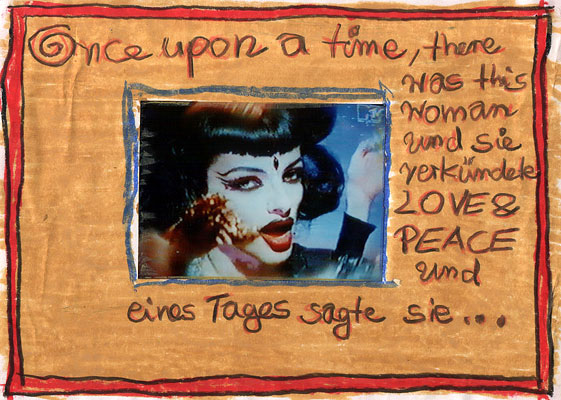 Once upon a time, there
was this
woman
und sie
verkündete
LOVE &
PEACE
und
eines Tages sagte sie...